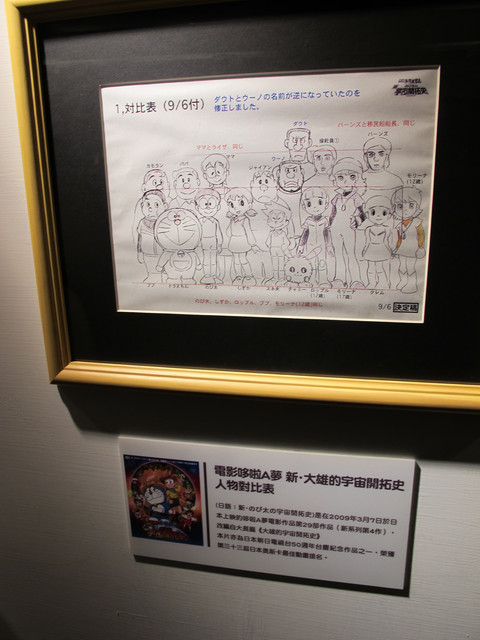 1,対比表 (9/6付)
ダウトとウーノの名前が逆になっていたのを
修正しました。
ママとライザ、同じ
バーンズと移民船船長、同じ
ダウト
バーンズ
カモラン
パパ
ママ
ジャイアン
ウーノ
モリーナ
(12歳)
ブブ
ドラえもん
のび太
しずか
スネ夫
チャミー
ロップル
(12歳)
モリーナ
(17歳)
クレム
のび太、しずか、ロップル、ブブ、モリーナ(12歳)同じ
9/6 決定稿
電影哆啦A夢 新・大雄的宇宙開拓史
人物對比表
(日版:新・のび太の宇宙開拓史)是在2009年3月7日於日
本上映的哆啦A夢電影作品第29部作品(新系列第4作)。
改編自大長篇《大雄的宇宙開拓史》
本片亦為日本朝日電視台50週年台慶紀念作品之一。榮獲
第三十三屆日本奧斯卡最佳動畫提名。